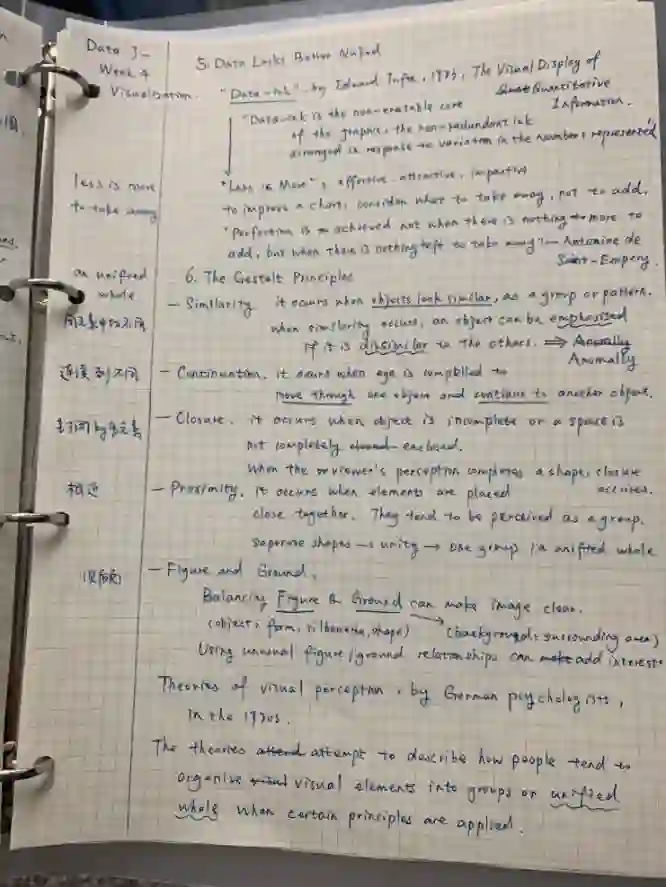 Data J-
Week 4
Visualisation.
5. Data Looks Better Naked
"Data-ink" - by Edward Tufte, 1983, The Visual Display of
Quantitative
Information.
"Data-ink is the non-erasable core
of the graphic, the non-redundant ink
arranged in response to variation in the numbers represented
less is more
to take away
"Less is More", effective, attractive, impactive
to improve a chart, consider what to take away, not to add.
"Perfection is achieved not when there is nothing more to
add, but when there is nothing left to take away" - Antonine de
Saint-Empery.
an unified
whole
6. The Gestalt Principles
- Similarity it occurs when objects look similar, as a group or pattern.
when similarity occurs, an object can be emphasised
if it is dissimilar to the others. ⇒
Anomally
- Continuation. it occurs when eye is complled to
move through one object and continue to another object.
- Closure. it occurs when object is incomplete or a space is
not completely enclosed.
When the viewer's perception completes a shape, closure
occures.
相近
- Proximity, it occurs when elements are placed
close together. They tend to be perceived as a group.
seperate shapes → unity → one group / a unified whole
- Figure and Ground,
Balancing Figure & Ground can make image clear.
(object: form, silhouette, shape) (background: surrounding area)
Using unusual figure/ground relationships can add interest
Theories of visual perception, by German psychologists,
in the 1920s.
The theories attempt to describe how people tend to
organise visual elements into groups or unified
whole when certain principles are applied.